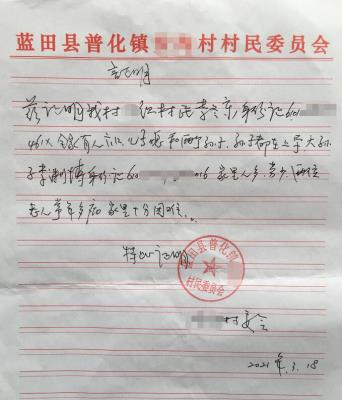 蓝田县普化镇 村村民委员会
证明
兹证明我村 组村民李 京 身份证610
461X 全家有人六口 儿子 和两个孙子 孙子都在上学 大孙
子李 博身份证610 016 家里人多 劳少 两位
老人常年多病 家里十分困难。
特此证明
蓝田县普化镇
村民委员会
村委会
2021年.3.18